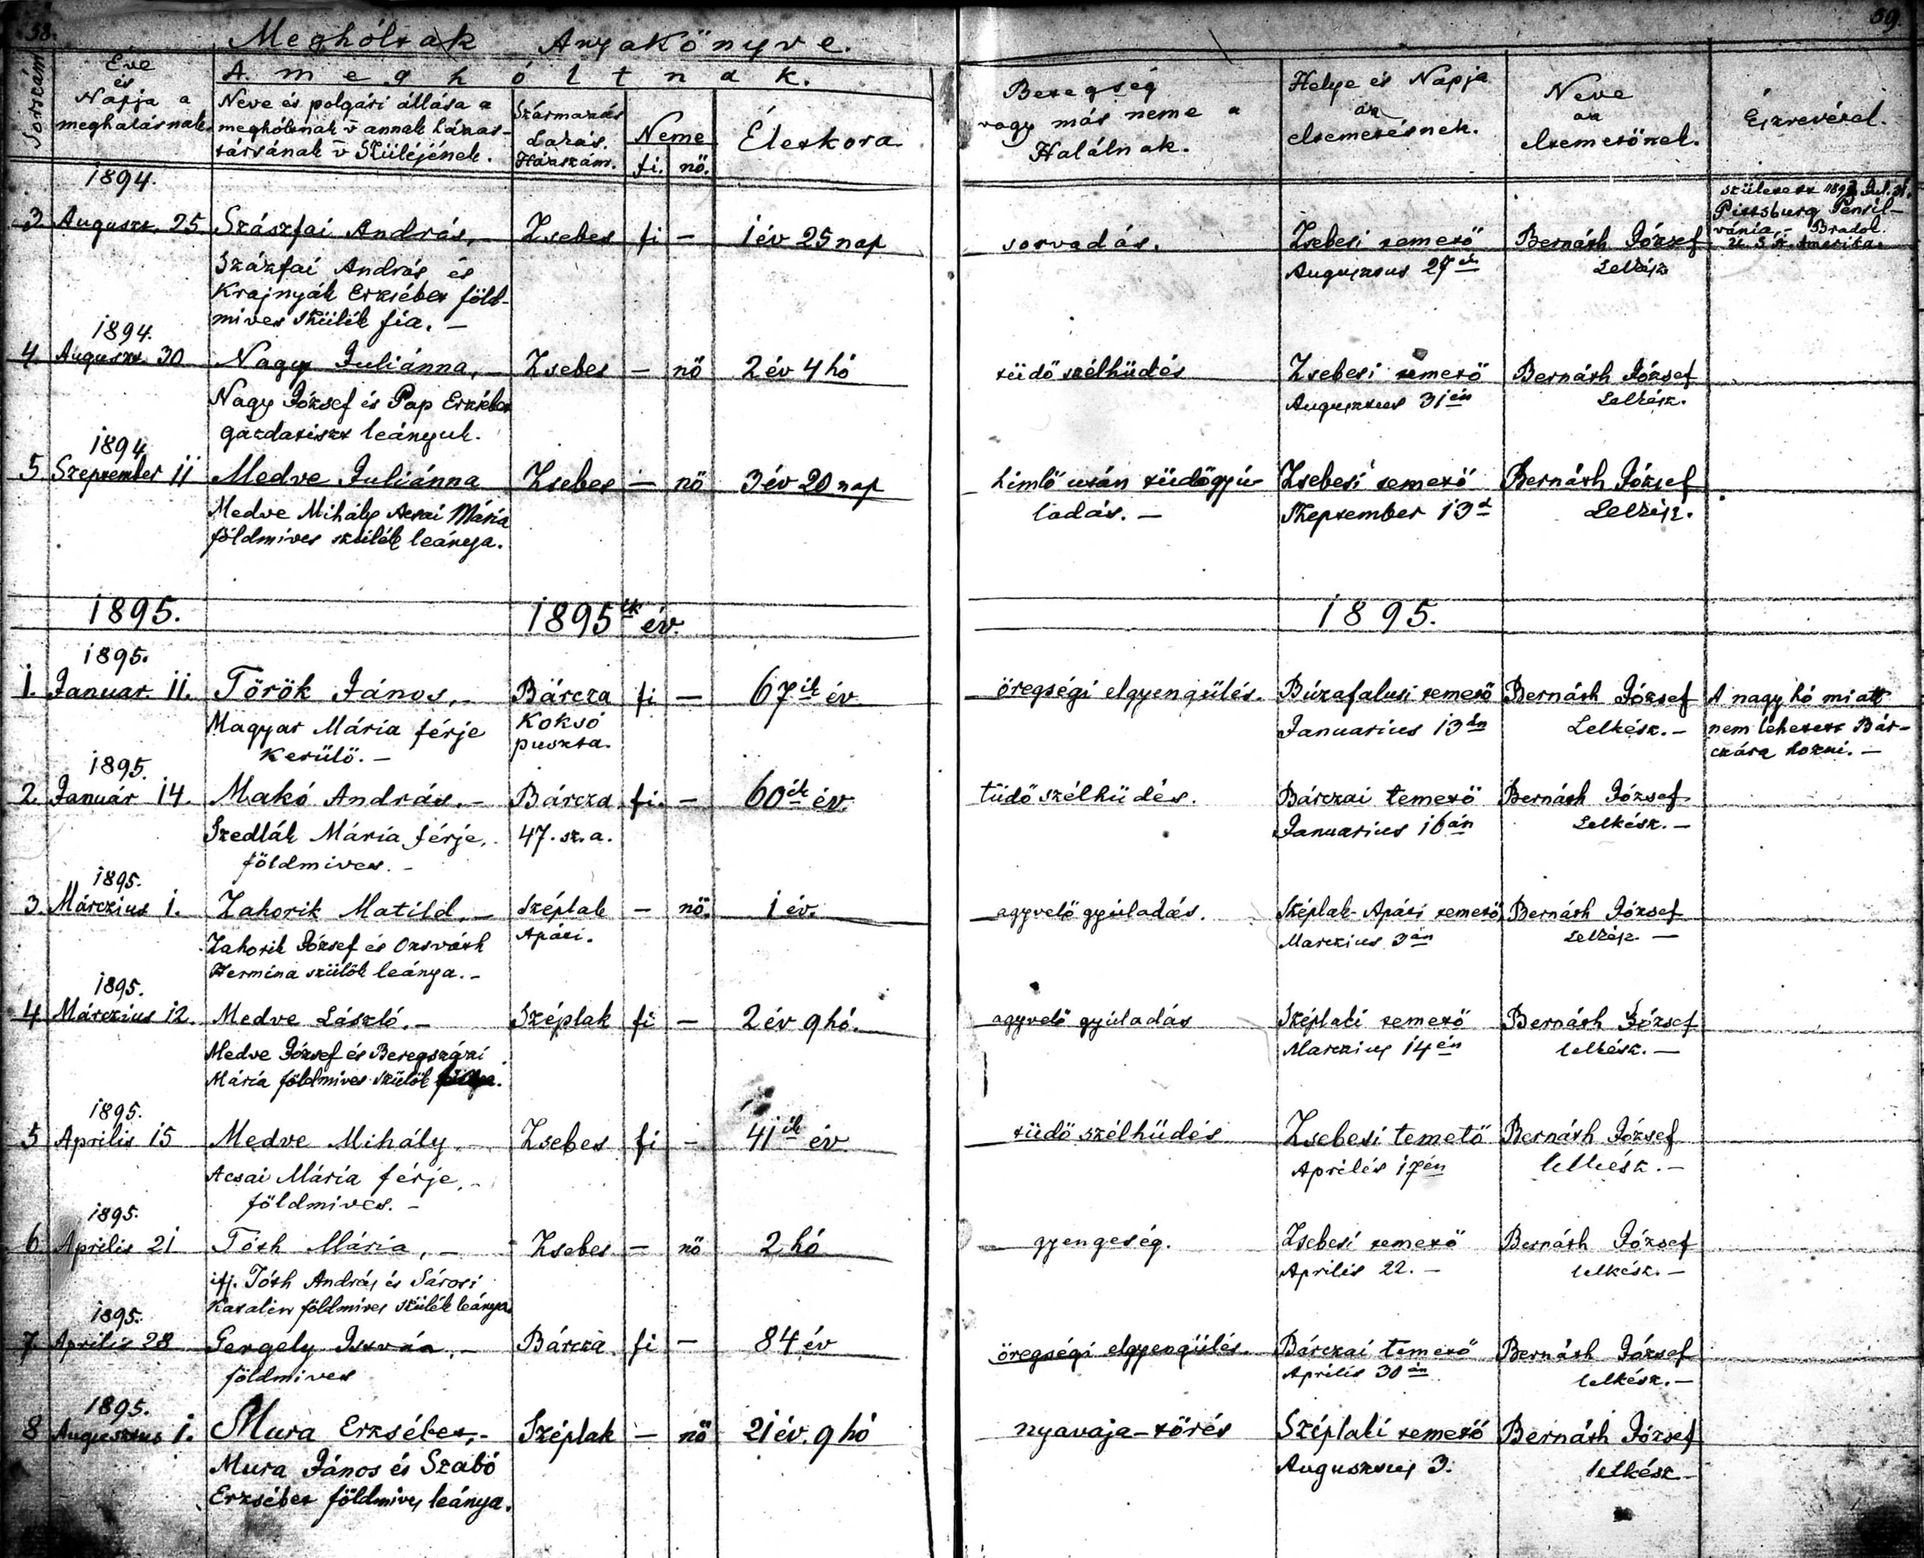 58.
Meghóltak Anyakönyve.
59.
Sorszám
Éve
és
Napja a
meghalásnak
A meghóltnak.
Neve és polgári állása a
meghóltnak v̄ annak házas-
társának v̄ Szüléjének.
Származás
Lakás.
Házszám.
Neme
fi. nő.
Életkora
Betegség
vagy más neme a
Halálnak.
Helye és Napja
az
eltemetésnek.
Neve
az
eltemetőnek.
Észrevétel.
1894.
3. August. 25 Szászfai András, Zsebes fi – 1 év 25 nap sorvadás. Zsebesi temető Bernáth József
Augusztus 27én Lelkész
született 1893 Jul. 31.
Pittsburg Pensil-
vánia, Bradok.
Amerika.
Szászfai András és
Krajnyák Erzsébet föld-
mives szülék fia. –
1894.
4. Auguszt. 30 Nagy Juliánna, – Zsebes – nő 2 év 4 hó tüdő szélhüdés Zsebesi temető Bernáth József
Nagy József és Pap Erzsébet Augusztus 31én Lelkész.
gazdatiszt leányuk.
1894
5 Szeptember 11 Medve Juliánna Zsebes – nő 3 év 20 nap himlő után tüdőgyú- Zsebesi temető Bernáth József
Medve Mihály Acsai Mária ladás. – Szeptember 13á Lelkész.
földmives szülék leánya.
1895. 1895ik év. 1895.
1895.
1. Januar 11. Török János, – Bárcza fi – 67ik év öregségi elgyengülés. Búzafalusi temető Bernáth József A nagy hó miatt
Magyar Mária férje Koksó Januarius 13án Lelkész. – nem lehetett Bár-
Kerülő. – puszta. czára hozni. –
1895.
2. Január 14. Makó András. – Bárcza fi. – 60ik év. tüdő szélhüdés. Bárczai temető Bernáth József
Szedlák Mária férje, 47. sz. a. Januarius 16án Lelkész. –
földmives. –
1895.
3. Márczius 1. Zahorik Matild, – Széplak – nő. 1 év. agyvelő gyúladás. Széplak-Apáti temető Bernáth József
Zahorik József és Ozsváth Apáti. Marczius 3án Lelkész –
Hermina szülők leánya. –
1895.
4 Márczius 12. Medve László. – Széplak fi – 2 év 9 hó. agyvelő gyúladás Széplaki temető Bernáth József
Medve József és Beregszászi Marczius 14én lelkész. –
Mária földmives szülők
1895.
5 Aprilis 15 Medve Mihály, – Zsebes fi – 41ik év tüdő szélhüdés Zsebesi temető Bernáth József
Acsai Mária férje, – Aprilis 17én lelkész. –
földmives. –
1895.
6 Aprilis 21 Tóth Mária, – Zsebes – nő 2 hó gyengeség. Zsebesi temető Bernáth József
ifj. Tóth András és Sárosi Aprilis 22. – lelkész. –
Katalin földmives szülék leánya.
1895.
7. Aprilis 28 Gergely István, – Bárcza fi – 84 év öregségi elgyengülés. Bárczai temető Bernáth József
földmives Aprilis 30án lelkész. –
1895.
8 Augusztus 1. Mura Erzsébet, – Széplak – nő 21 év. 9 hó nyavaja-törés Széplaki temető Bernáth József
Mura János és Szabó Augusztus 3. lelkész –
Erzsébet földmives leánya.